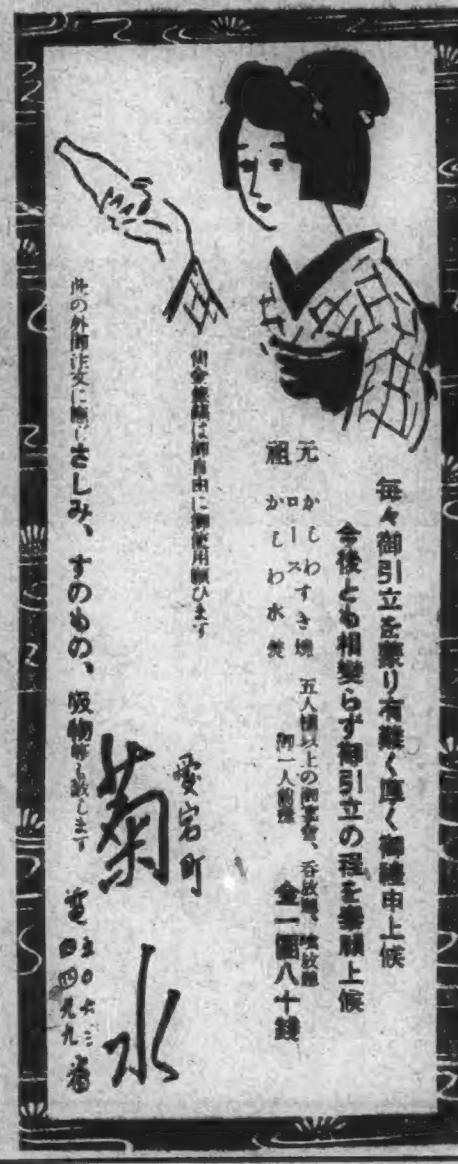 毎々御引立を蒙り有難く厚く御禮申上候
今後とも相變らず御引立の程を奉願上候
元祖
かしわすき燒
ロース
かしわ水焚
五人樣以上の御宴會、呑放題、喰放題
御一人前様
金一圓八十錢
は御自由に御使用願ひます
愛宕町
菊水
此の外御注文に應じさしみ、すのもの、吸物等も致します
電五〇六三
四四九九番